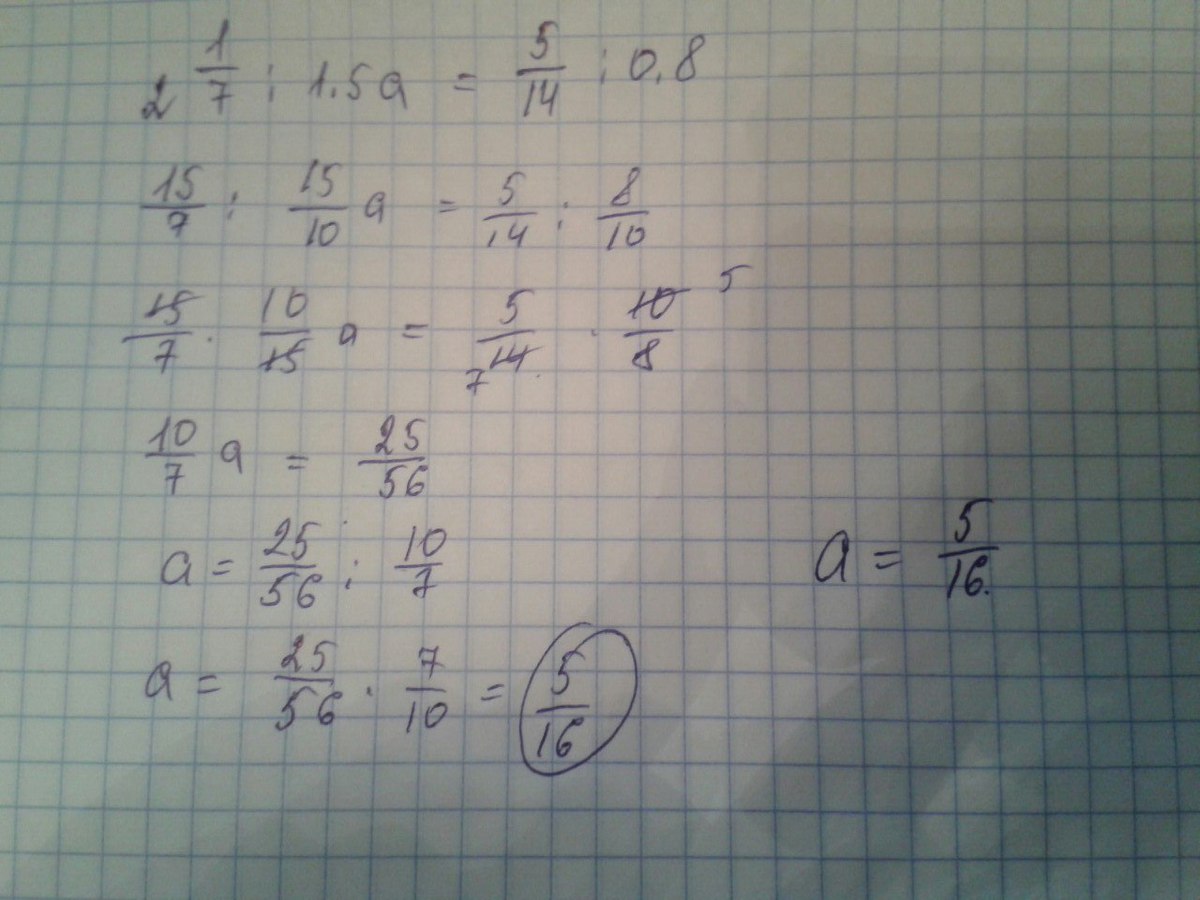 2 1/7 : 1.5a = 5/14 : 0.8
15/7 : 15/10 a = 5/14 : 8/10
15/7 · 10/15 a = 5/14 7 · 10/8 5
10/7 a = 25/56
a = 25/56 : 10/7
a = 5/16.
a = 25/56 · 7/10 = 5/16